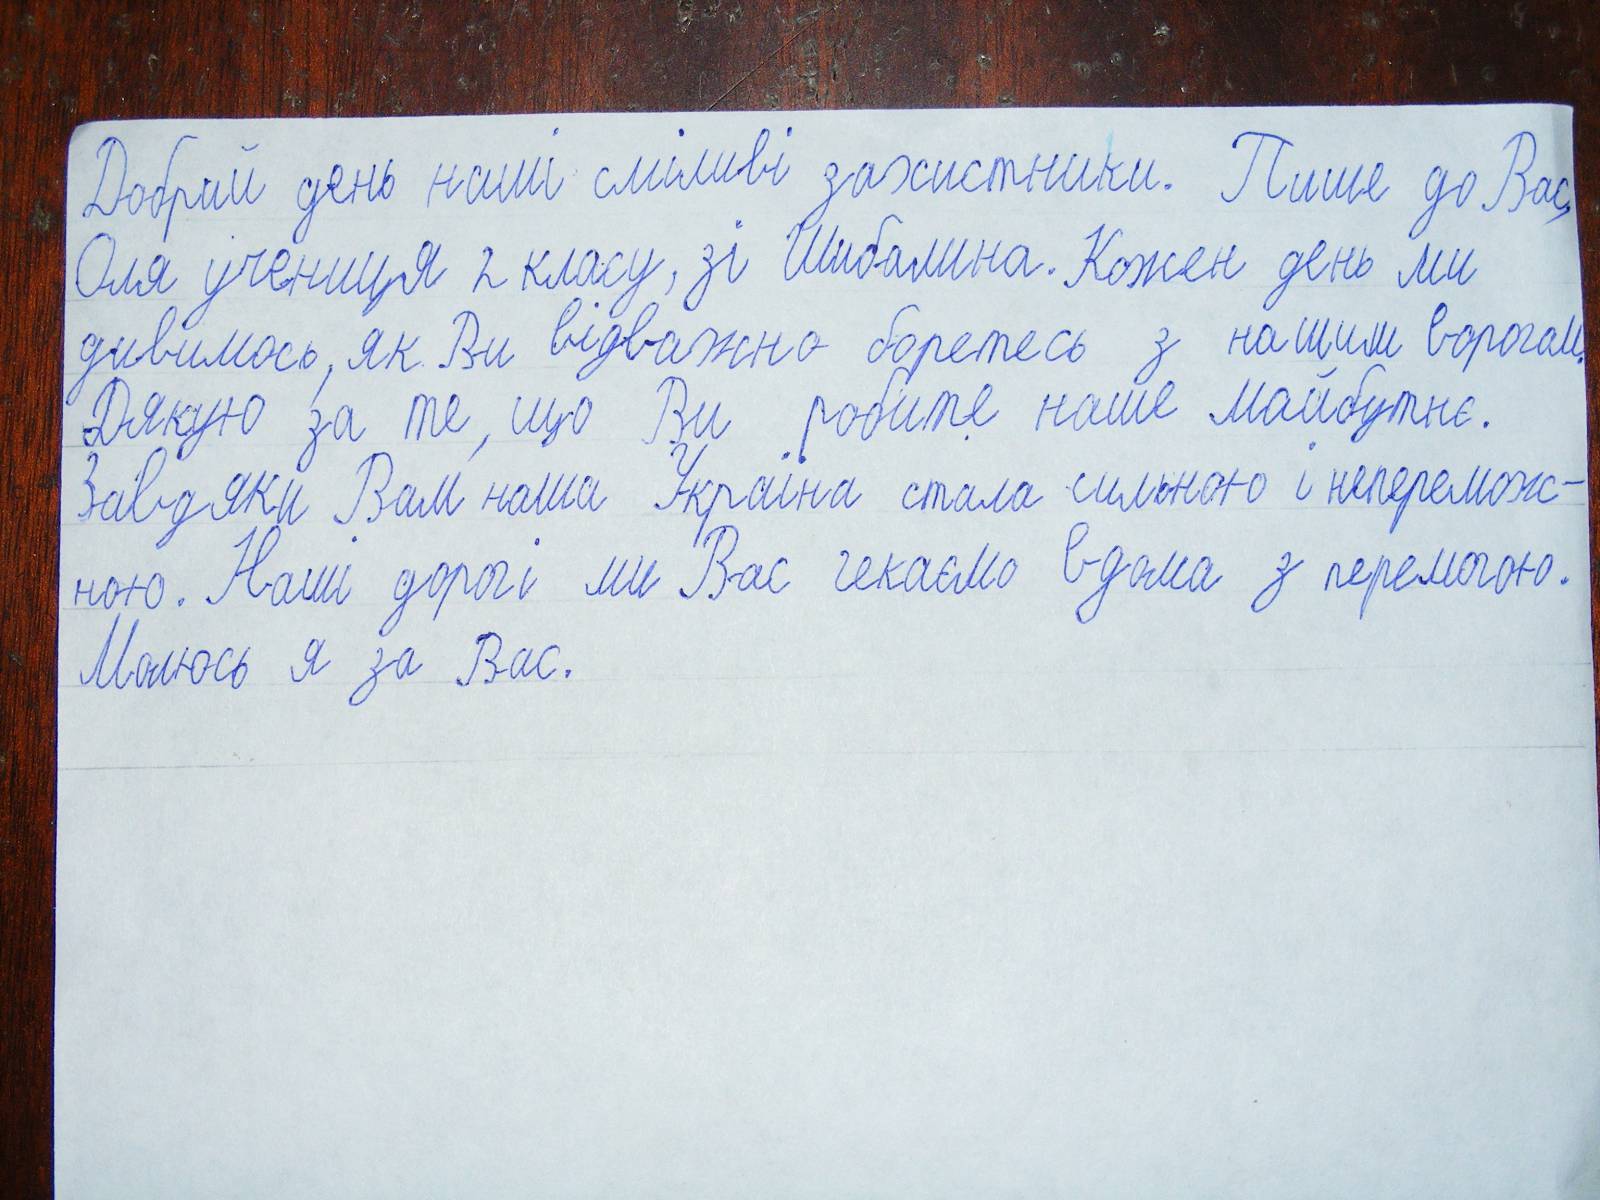 Добрий день наші сміливі захистники. Пише до Вас,
Оля учениця 2 класу, зі Шибалина. Кожен день ми
дивимось, як Ви відважно боретесь з нашим ворогом.
Дякую за те, що Ви робите наше майбутнє.
Завдяки Вам наша Україна стала сильною і неперемож-
ною. Наші дорогі ми Вас чекаємо вдома з перемогою.
Молюсь я за Вас.